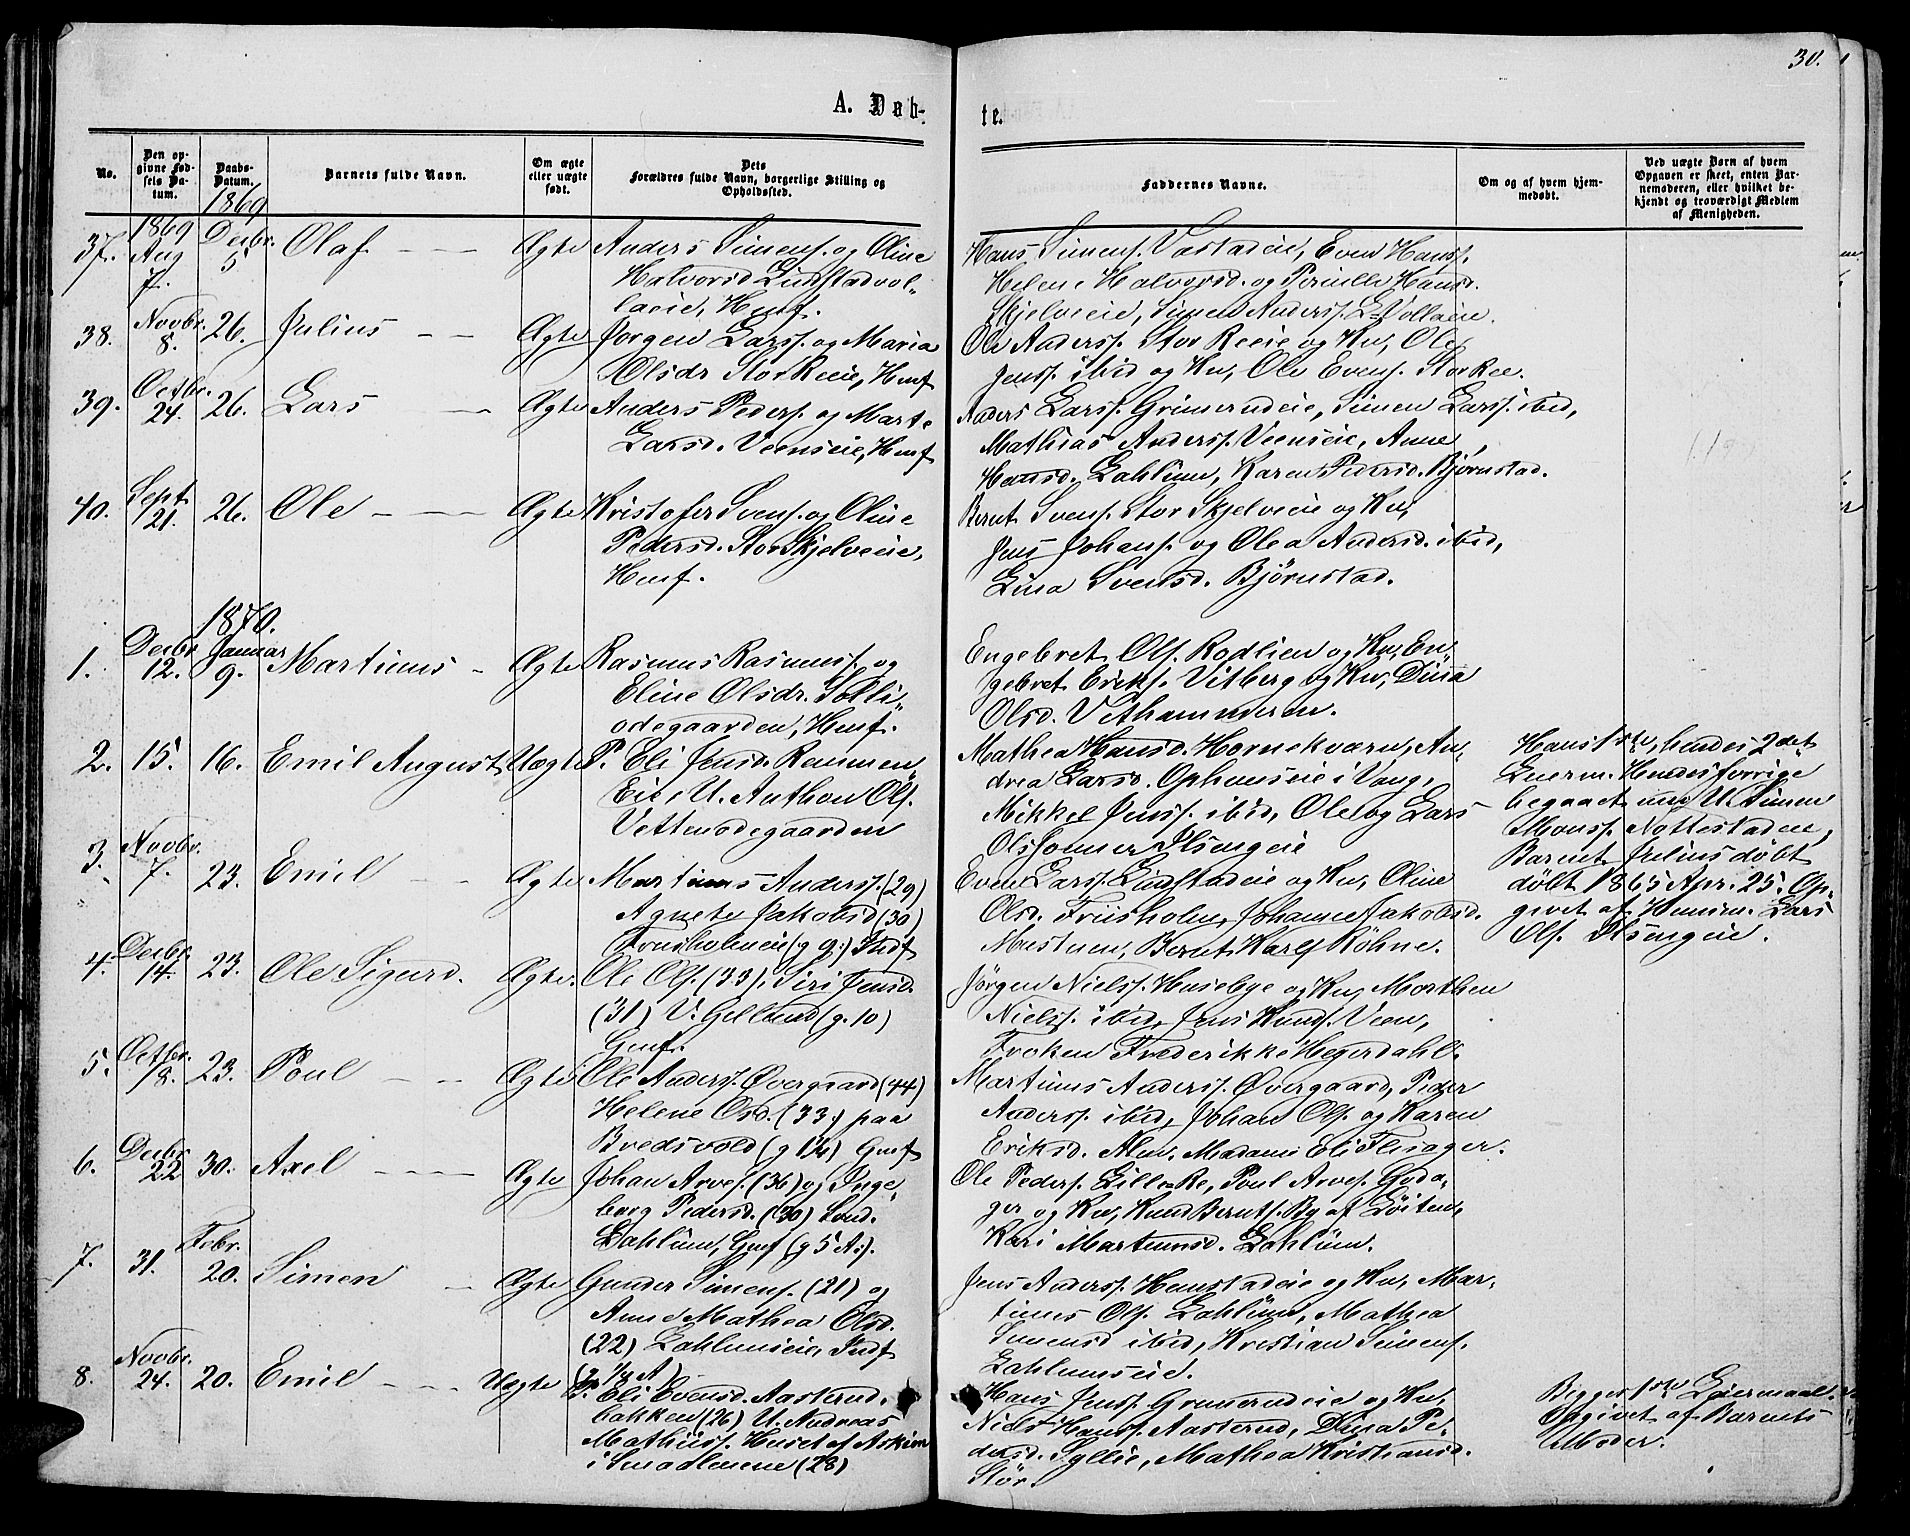 30.
A. Døb-
te.
No.
Den op-
givne Fød-
sels Da-
tum.
Daabs-
Datum.
Barnets fulde Navn.
Om ægte
eller uægte
født.
Dets
Forældres fulde Navn, borgerlige Stilling og
Opholdssted.
Faddernes Navne.
Om og af hvem hjem-
medøbt.
Ved uægte Børn af hvem
Opgaven er skeet, enten Bar-
nemoderen, eller hvilket be-
kjendt og troværdigt Medlem
af Menigheden.
1869
1869
37. Aug 7. Decbr. 5 Olaf Ægte
Anders Simens. og Oline
Halvorsd Lindstadvol-
laeie, Hmf.
Hans Simens. Vastadeie, Even Hanss.
Helene Halvorsd. og Pernille Hansd.
Skjelveeie, Simen Anderss. L-Vollaeie.
38. Novbr. 8. 26. Julius Ægte
Jørgen Larss. og Maria
Olsdr Stor Reeie, Hmf
Ole Anderss. Stor Reeie og Ku, Ole
Jenss. ibid og Ku, Ole Evens. Stor Ree.
39. Octbr. 24. 26. Lars Ægte
Anders Peders. og Marte
Larsd. Veenseie, Hmf
Anders Larss. Grimerudeie, Simen Larss. ibid,
Mathias Anderss. Veenseie, Anne
Hansd. Zahlum, Karen Pedersd. Bjørnstad.
40. Sept 21. 26. Ole Ægte
Kristofer Svens. og Oline
Pedersd. Stor Skjelveeie,
Hmf.
Bernt Svens. Stor Skjelveeie og Ku,
Jens Johans. og Olea Andersd. ibid,
Lina Svensd. Bjørnstad.
1870.
1. Decbr 12. Januar 9. Martinus Ægte
Rasmus Rasmuss. og
Eline Olsdr. Solli-
ødegaarden, Hmf.
Engebret Ols. Rodlien og Ku, En-
gebret Eriks. Vitberg og Ku, Dina
Olsd. Vethammeren.
2. 15. 16. Emil August Uægte
P. Eli Jensd. Remmen
Eie, U. Anthon Ols.
Vettenødegaarden
Mathea Hansd. Hornekværn, An-
drea Larsd. Ophuuseie i Vang,
Mikkel Jenss. ibid, Ole og Lars
Olssønner Ilsengeie
Hans 1ste, hendes 2det
Leierm. Hendes forrige
begaaet med U. Simen
Monss. Nottestadeie,
Barnet Julius døbt
døbt 1865 Apr. 25. Op-
givet af Husm. Lars
Ols. Ilsengeie.
3. Novbr. 7. 23. Emil Ægte
Martinus Anderss. (29)
Agnete Jakobsd (30)
Friisholmeie (g 9.) Indf
Even Larss. Lindstadeie og Ku, Oline
Olsd. Friisholm, Johanne Jakobsd.
Mustuen, Bernt Karls Køhne.
4. Decbr. 14. 23. Ole Sigurd. Ægte.
Ole Ols. (33), Siri Jensd.
(31) V. Gelland (g. 10)
Gmf.
Jørgen Nielss. Huusebye og Ku, Morthen
Nielss. ibid, Jens Knuds. Veen,
Frøken Frederikke Hegerdahl.
5. Octbr. 18. 23. Poul Ægte
Ole Anderss. Øvergaard (44)
Helene Olsd. (33) paa
Bredsvold (g 14) Gmf
Martinus Anderss. Øvergaard, Peder
Anderss. ibid, Johan Ols. og Karen
Eriksd. Alm, Madame Eli Flisager.
6. Decbr 22 30. Axel Ægte
Johan Arves. (36) og Inge-
borg Pedersd. (30)
Zahlum, Gmf (g 5 A.).
Ole Peders. Lille Re, Poul Arves. Goda-
ger og Ku, Knud Bernts. By af Løiten,
Kari Martinusd. Zahlum.
7. 31. Febr. 20. Simen Ægte
Gunder Simens. (21) og
Anne Mathea Olsd.
(22) Zahlumseie, Indf
(g 1/4 A)
Jens Anderss. Hemstadeie og Ku, Mar-
tinus Ols. Zahlum, Mathea
Simensd ibid, Kristian Simens.
Zahlumseie.
8. Novbr. 24. 20. Emil Uægte
P. Eli Evensd. Aasterud-
bakken (26) U. Andreas
Mathiiss. Huset af Askim
i Smaalenene (28)
Hans Jenss. Grimerudeie og Ku,
Niels Hanss. Aasterud, Dina Pe-
dersd. Syllie, Mathea Kristiansd.
Stør.
Begges 1ste Leiermaal.
Opgivet af Barnets
Moder.